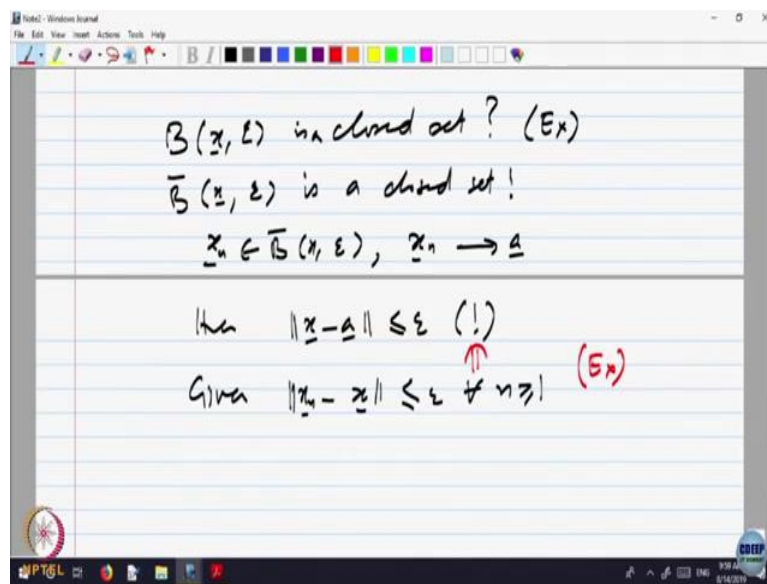 Note2 - Windows Journal
File Edit View Insert Actions Tools Help
B I
B(x, ε) is a closed set? (Ex)
B̄(x, ε) is a closed set!
xₙ ∈ B̄(x, ε), xₙ → a
then ||x - a|| ≤ ε (!)
⇑
Given ||xₙ - x|| ≤ ε ∀ n ≥ 1 (Ex)
NPTEL
CDEEP
IIT BOMBAY
ENG
9:59 AM
8/14/2019